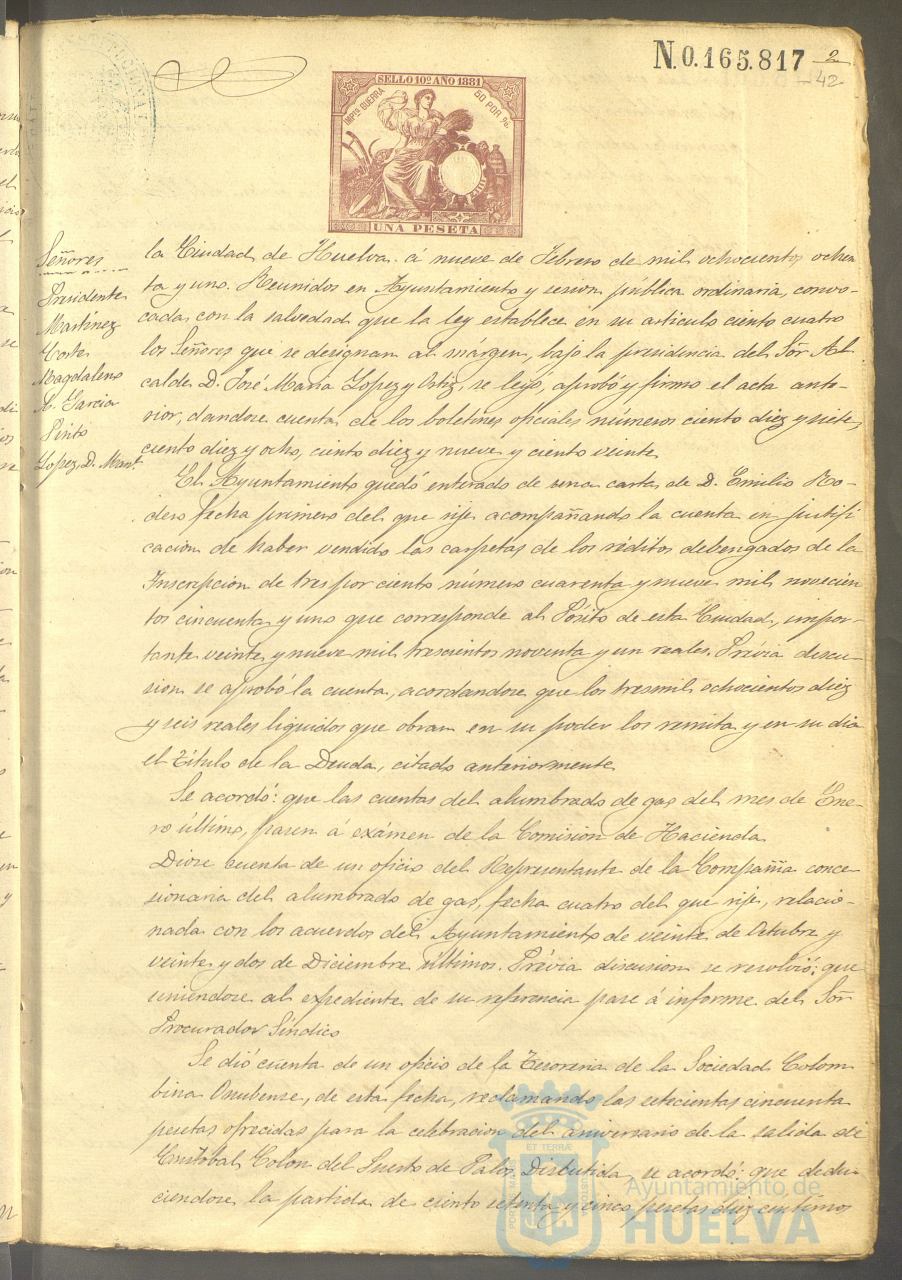 N.0.165.817
2
42
SELLO 10º AÑO 1881
IMPTO GUERRA
50 POR %
UNA PESETA
Señores
Presidente
Martínez
Corte
Magdaleno
A. Garcia
Pinto
Lopez, D. Man.l
la Ciudad de Huelva á nueve de Febrero de mil ochocientos ochen
ta y uno. Reunidos en Ayuntamiento y sesion pública ordinaria, convo-
cada con la salvedad que la ley establece en su articulo ciento cuatro
los Señores que se designan al márgen, bajo la presidencia del Sor. Al
calde D. José Maria Lopez y Ortiz, se leyó, aprobó y firmó el acta ante-
rior, dandose cuenta de los boletines oficiales números ciento diez y siete,
ciento diez y ocho, ciento diez y nueve y ciento veinte.
El Ayuntamiento quedó enterado de una carta de D. Emilio Ro-
dero fecha primero del que rije acompañando la cuenta en justifi
cacion de haber vendido las carpetas de los réditos debengados de la
Inscripcion de tres por ciento número cuarenta y nueve mil novecien
tos cincuenta y uno que corresponde al Pósito de esta Ciudad, impor-
tante veinte y nueve mil trescientos noventa y un reales. Prévia descu-
sion se aprobó la cuenta, acordandose que los tres mil ochocientos diez
y seis reales liquidos que obran en su poder los remita y en su dia
el Título de la Deuda, citado anteriormente
Se acordó: que las cuentas del alumbrado de gas del mes de Ene-
ro último, pasen á exámen de la Comision de Hacienda
Diose cuenta de un oficio del Representante de la Compañia conce
sionaria del alumbrado de gas, fecha cuatro del que rije, relacio-
nada con los acuerdos del Ayuntamiento de veinte de Octubre y
veinte y dos de Diciembre últimos. Prévia discusion se resolvió: que
uniendose al expediente de su referencia pase á informe del Sor
Procurador Síndico
Se dió cuenta de un oficio de la Tesoreria de la Sociedad Colom
bina Onubense, de esta fecha, reclamando las setecientas cincuenta
pesetas ofrecidas para la celebracion del aniversario de la salida de
Cristobal Colon del Puerto de Palos. Discutida, se acordó: que dedu-
ciendose la partida de ciento setenta y cinco pesetas diez centimos
Ayuntamiento de
HUELVA